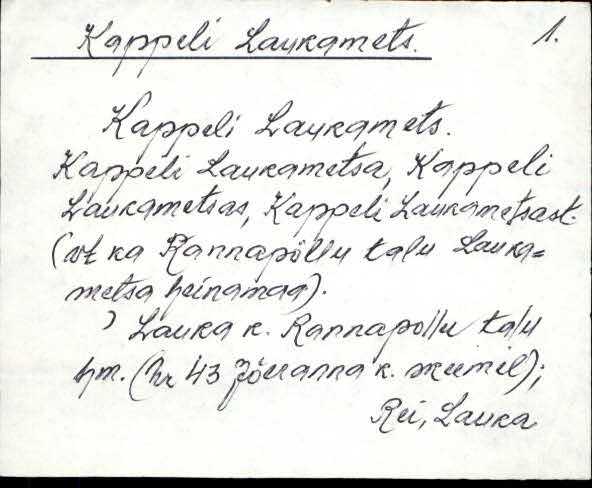 Kappeli Laukamets. 1.
Kappeli Laukamets.
Kappeli Laukametsa, Kappeli
Laukametsas, Kappeli Laukametsast.
(vt ka Rannapõllu talu Lauka=
metsa heinamaa).
) Lauka k. Rannapõllu talu
hm. (Nr 43 Jõeranna k. skeemil);
Rei, Lauka